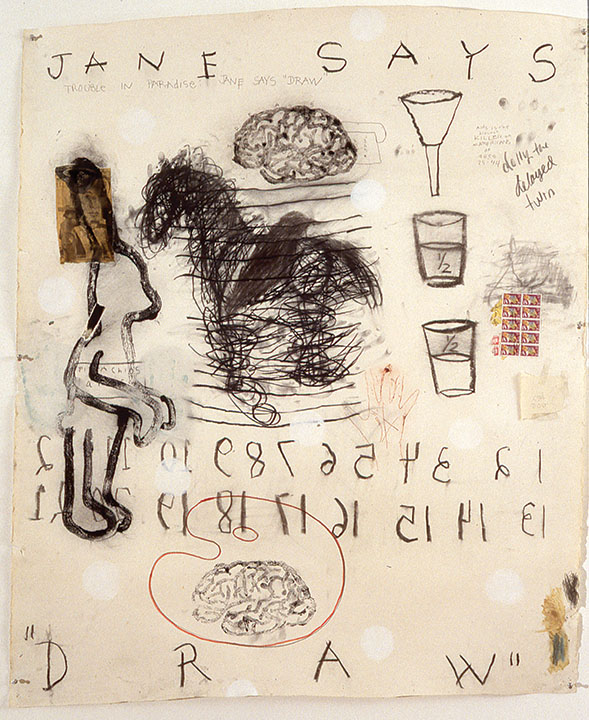 JANE SAYS
TROUBLE IN PARADISE JANE SAYS "DRAW
dolly the
delayed
twin
1/2
1/2
1 2 3 4 5 6 7 8 9 10
13 14 15 16 17 18 19
"DRAW"